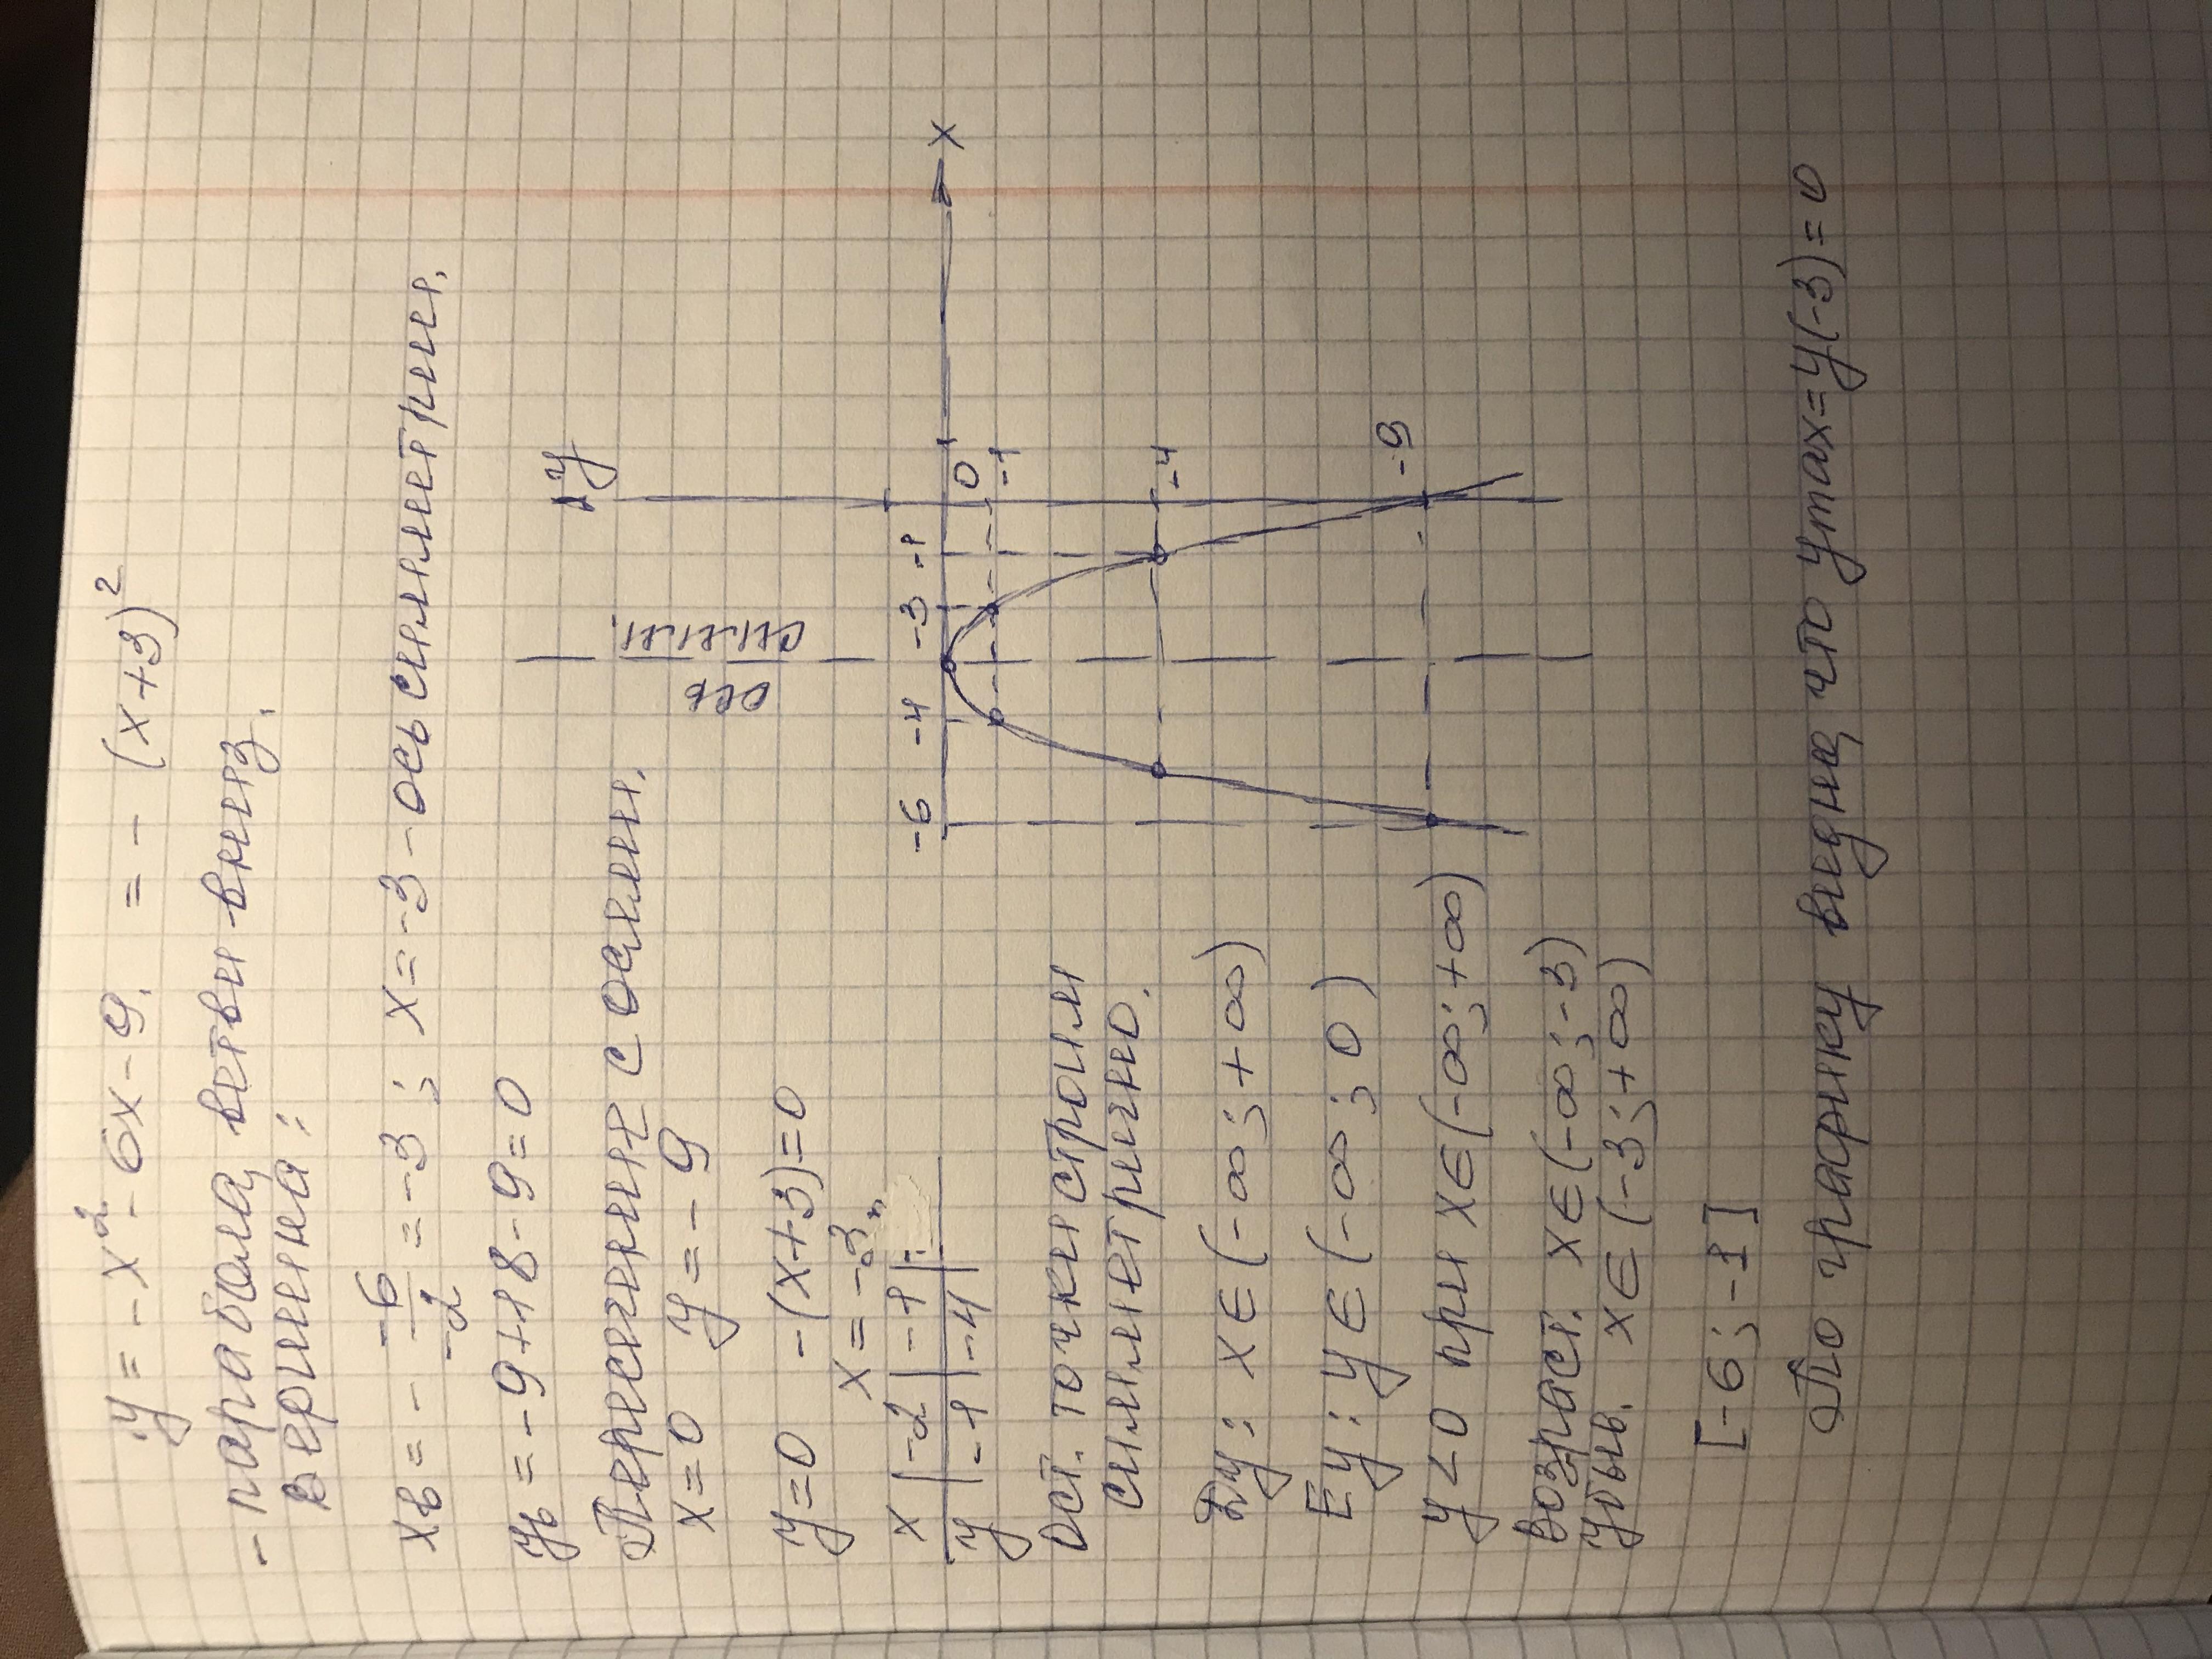 y = -x² - 6x - 9. = - (x+3)²
- парабола, ветви вниз.
Вершина:
xв = - -6/-2 = -3; x = -3 - ось симметрии.
yв = -9+18-9=0
Пересечение с осями.
x=0 y=-9
y=0 -(x+3)=0
x=-3
x | -2 | -1 |
y | -1 | -4 |
Ост. точки строим
симметрично.
Dy: x∈(-∞;+∞)
Ey: y∈(-∞; 0)
y<0 при x∈(-∞;+∞)
Возраст. x∈(-∞;-3)
убыв. x∈(-3;+∞)
[-6;-1]
По графику видно, что ymax=y(-3)=0
y
ось симм.
-6 -4 -3 -1
0 1
x
-1
-4
-9